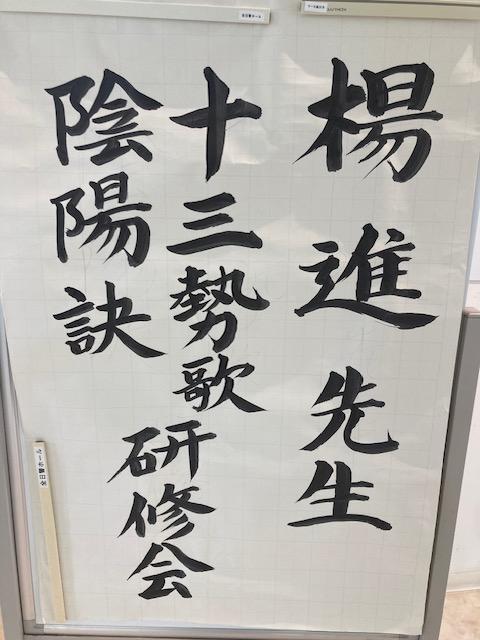 楊進先生
十三勢歌
陰陽訣
研修会